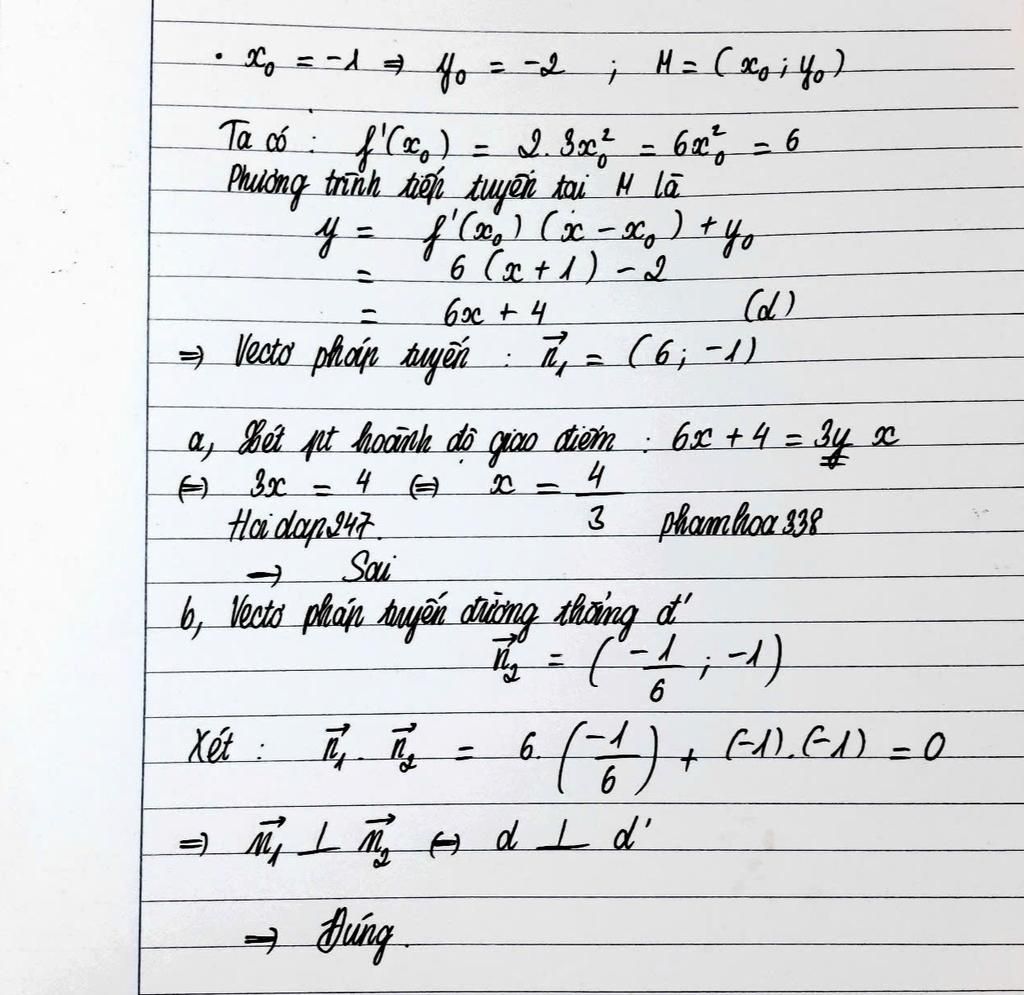 • x₀ = -1 ⇒ y₀ = -2 ; M = (x₀ ; y₀)
Ta có : f'(x₀) = 2.3x₀² = 6x₀² = 6
Phương trình tiếp tuyến tai M là
y = f'(x₀) (x - x₀) + y₀
= 6 (x + 1) - 2
= 6x + 4 (d)
⇒ Vectơ pháp tuyến : n⃗₁ = (6 ; -1)
a, Xét pt hoành độ giao điểm : 6x + 4 = 3y x
⇔ 3x = 4 ⇔ x = 4/3
Hoidap247. phamhoa338
→ Sai
b, Vectơ pháp tuyến đường thẳng d'
n⃗₂ = (-1/6 ; -1)
Xét : n⃗₁ . n⃗₂ = 6. (-1/6) + (-1).(-1) = 0
⇒ n⃗₁ ⊥ n⃗₂ ⇔ d ⊥ d'
⇒ Đúng.